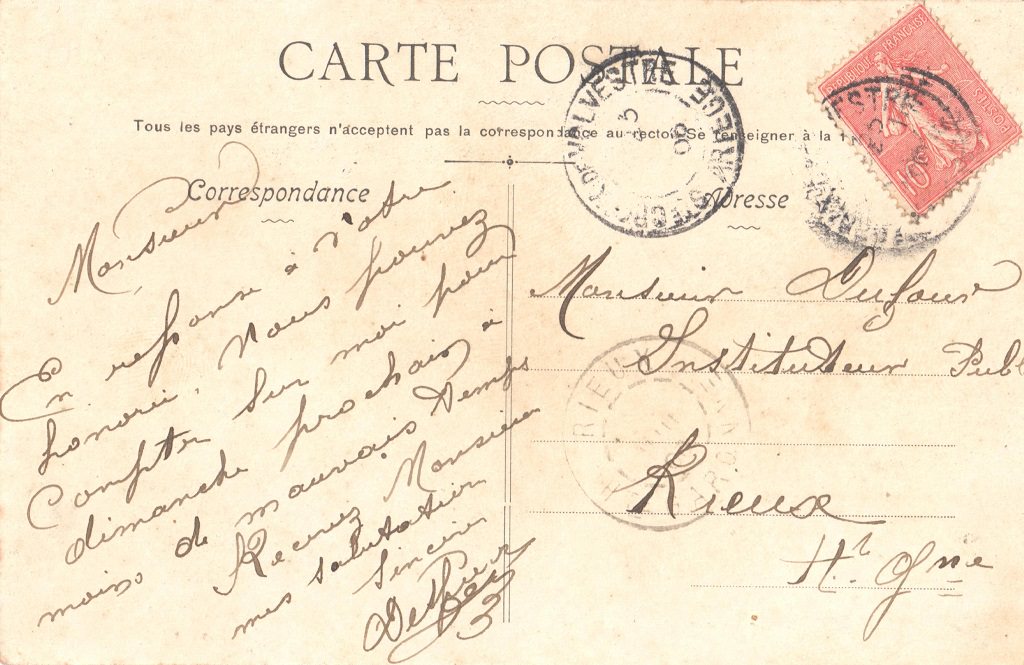 CARTE POSTALE
Tous les pays étrangers n'acceptent pas la correspondance au recto. Se renseigner à la
Correspondance
Monsieur
En réponse à votre
honorée, Vous pouvez
Compter sur moi pour
dimanche prochain à
moins de mauvais Temps
Recevez Monsieur
mes salutations
Sincères
Adresse
Monsieur Dufour
Instituteur Publ
Rieux
Hte Gne
REPUBLIQUE FRANÇAISE
POSTES
10
RIEUX